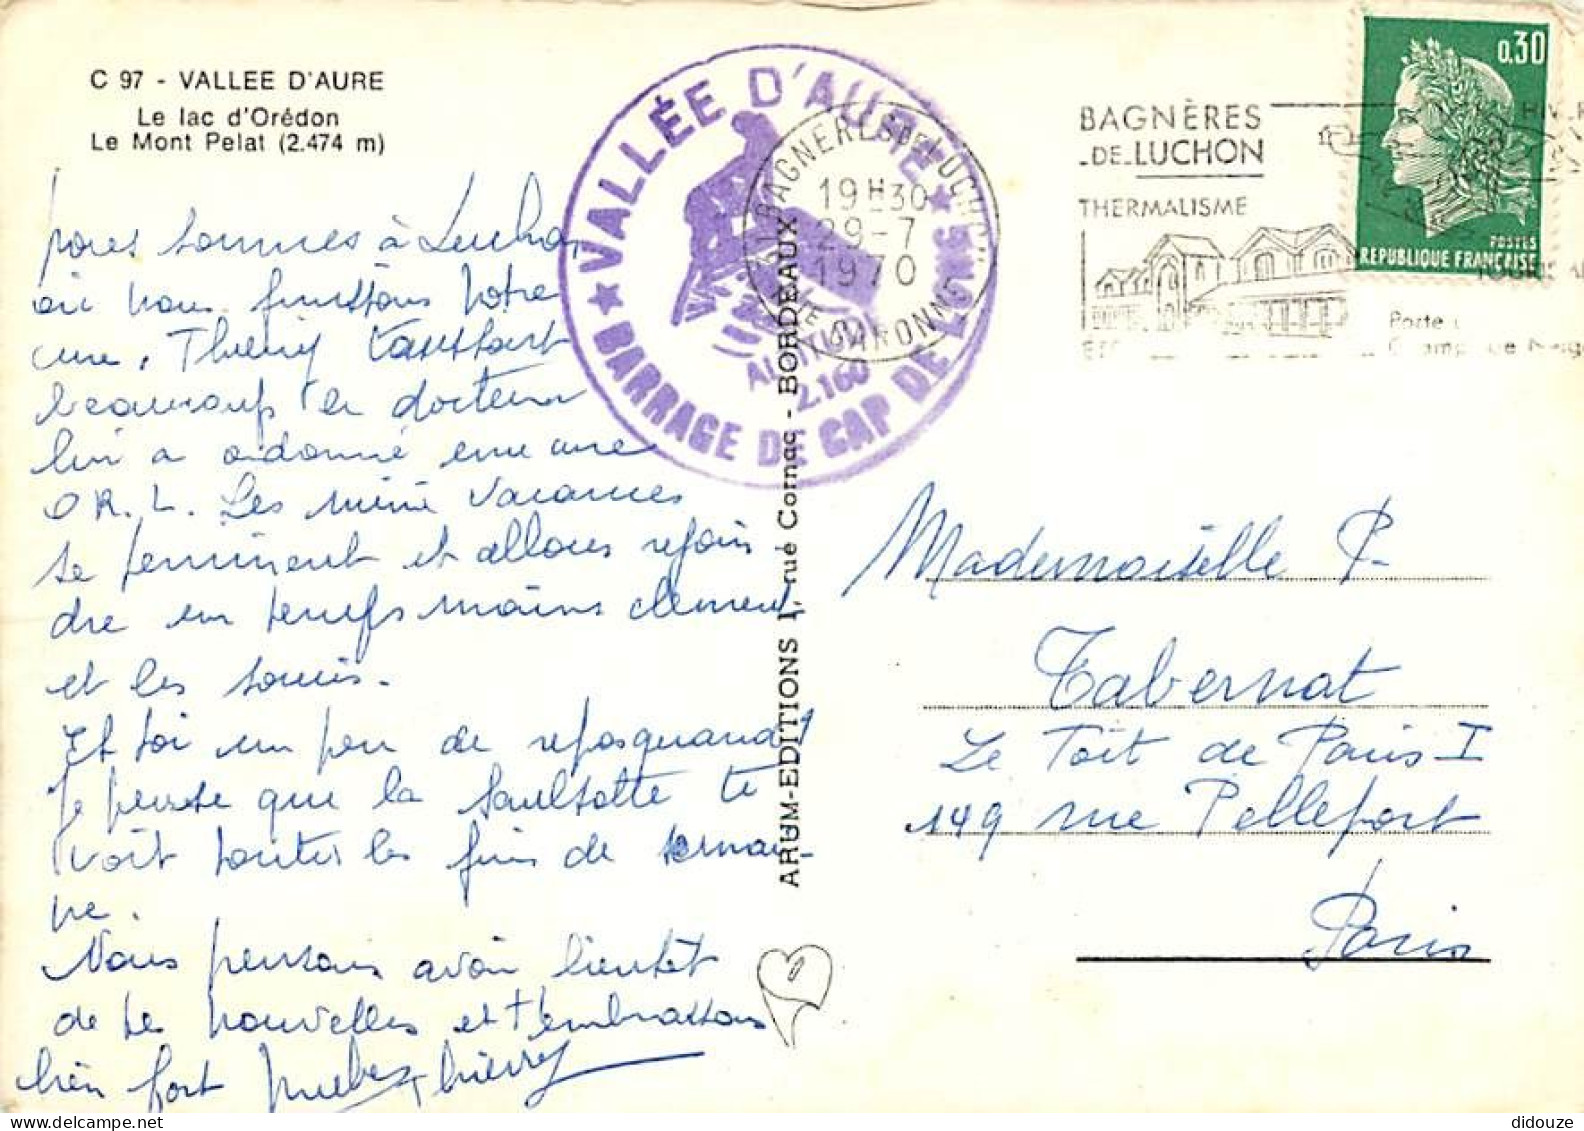 C 97 - VALLEE D'AURE
Le lac d'Orédon
Le Mont Pelat (2.474 m)
nous sommes à Luchon
où nous finissons notre
cure, Thierry toussant
beaucoup le docteur
lui a ordonné une cure
O R. L. Les mini vacances
se terminent et allons rejoin
dre un temps moins clément
et les soucis.
Et toi un peu de repos quand ?
Je pense que la Saulsotte te
voit toutes les fins de semai-
ne.
Nous pensons avoir bientôt
de tes nouvelles et t'embrassons
bien fort Thierry
VALLÉE D'AURE
BARRAGE DE CAP DE LONG
ALTITUDE
2.160
31 BAGNERES DE LUCHON
19H30
29-7
1970
HTE GARONNE
ARUM-EDITIONS 1, rue Cornac - BORDEAUX
BAGNÈRES
-DE-LUCHON
THERMALISME
Porte
0,30
POSTES
REPUBLIQUE FRANÇAISE
Mademoiselle P.
Tabernat
Le Toit de Paris I
149 rue Pelleport
Paris
didouze